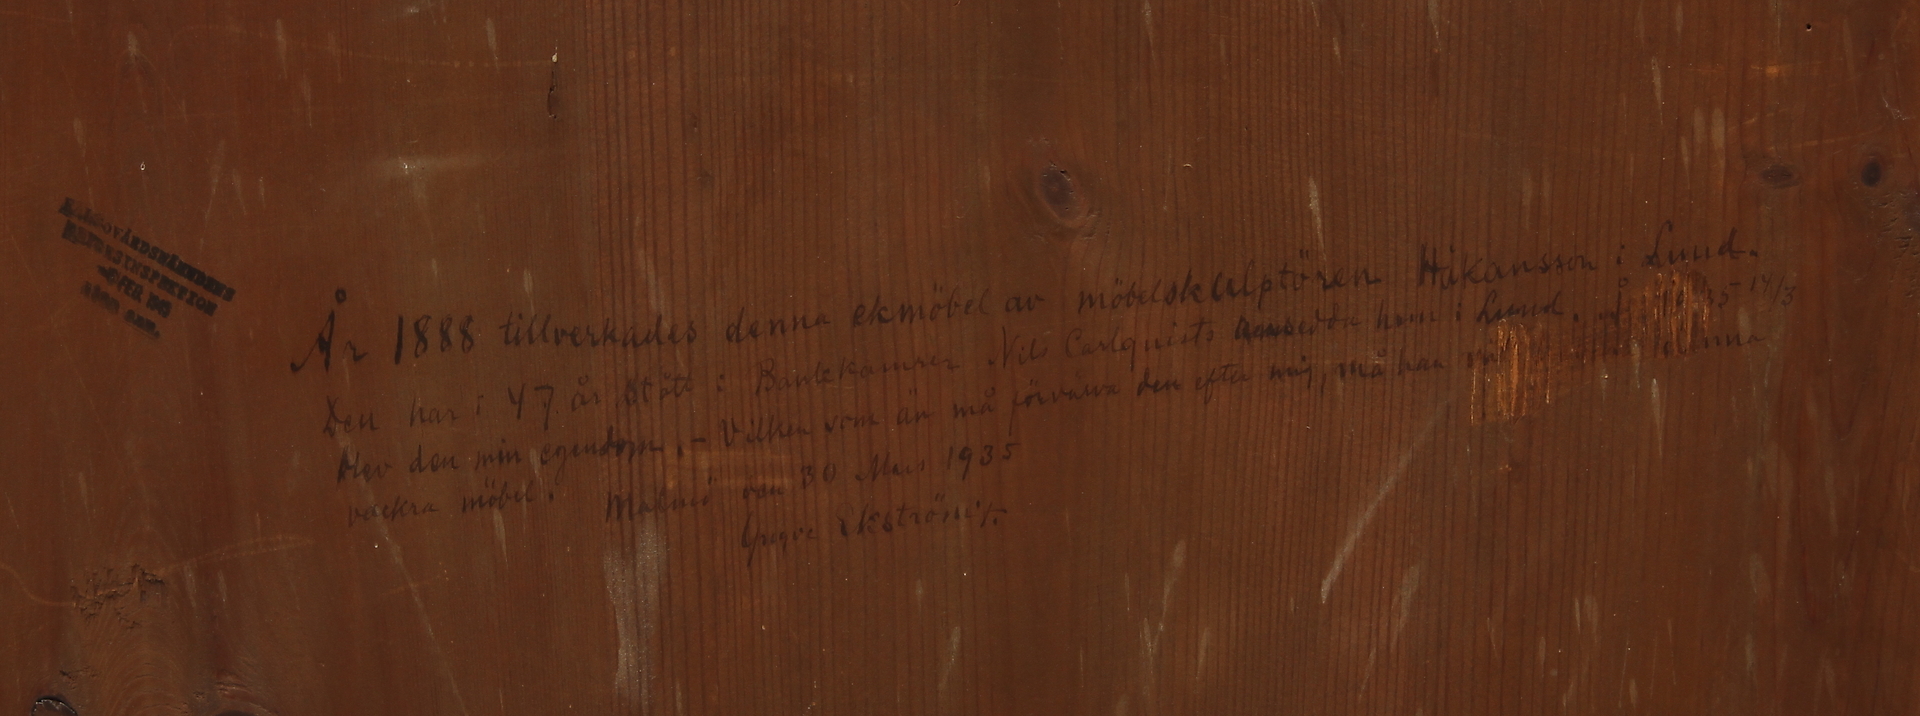 HÄLSOVÅRDSNÄMNDENS
År 1888 tillverkades denna ekmöbel av möbelskulptören Håkansson i Lund.
Den har i 47 år stått i Bankkamrer Nils Carlquists hem i Lund. Å 1935 14/3
blev den min egendom. – Vilken som än må förvärva den efter mig, må han denna
vackra möbel. Malmö den 30 Mars 1935